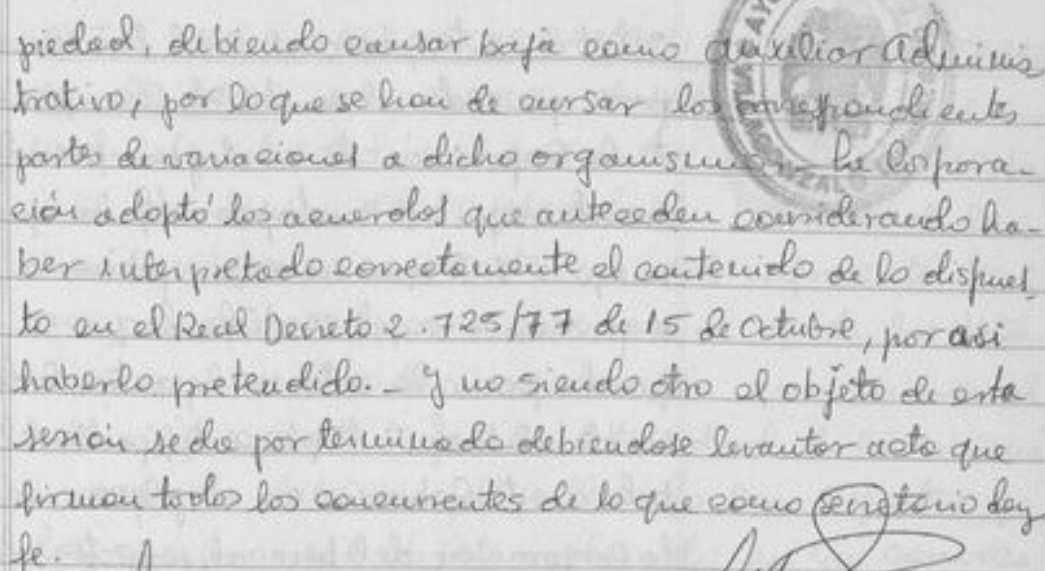 piedad, debiendo causar baja como auxiliar Adminis
trativo, por lo que se han de cursar los correspondientes
partes de variaciones a dicho organismo.- La Corpora-
ción adoptó los acuerdos que anteceden considerando ha-
ber interpretado correctamente el contenido de lo dispues_
to en el Real Decreto 2.725/77 de 15 de Octubre, por asi
haberlo pretendido._ Y no siendo otro el objeto de esta
sesión se da por terminada debiendose levantar acta que
firman todos los concurrentes de lo que como secretario doy
fe.